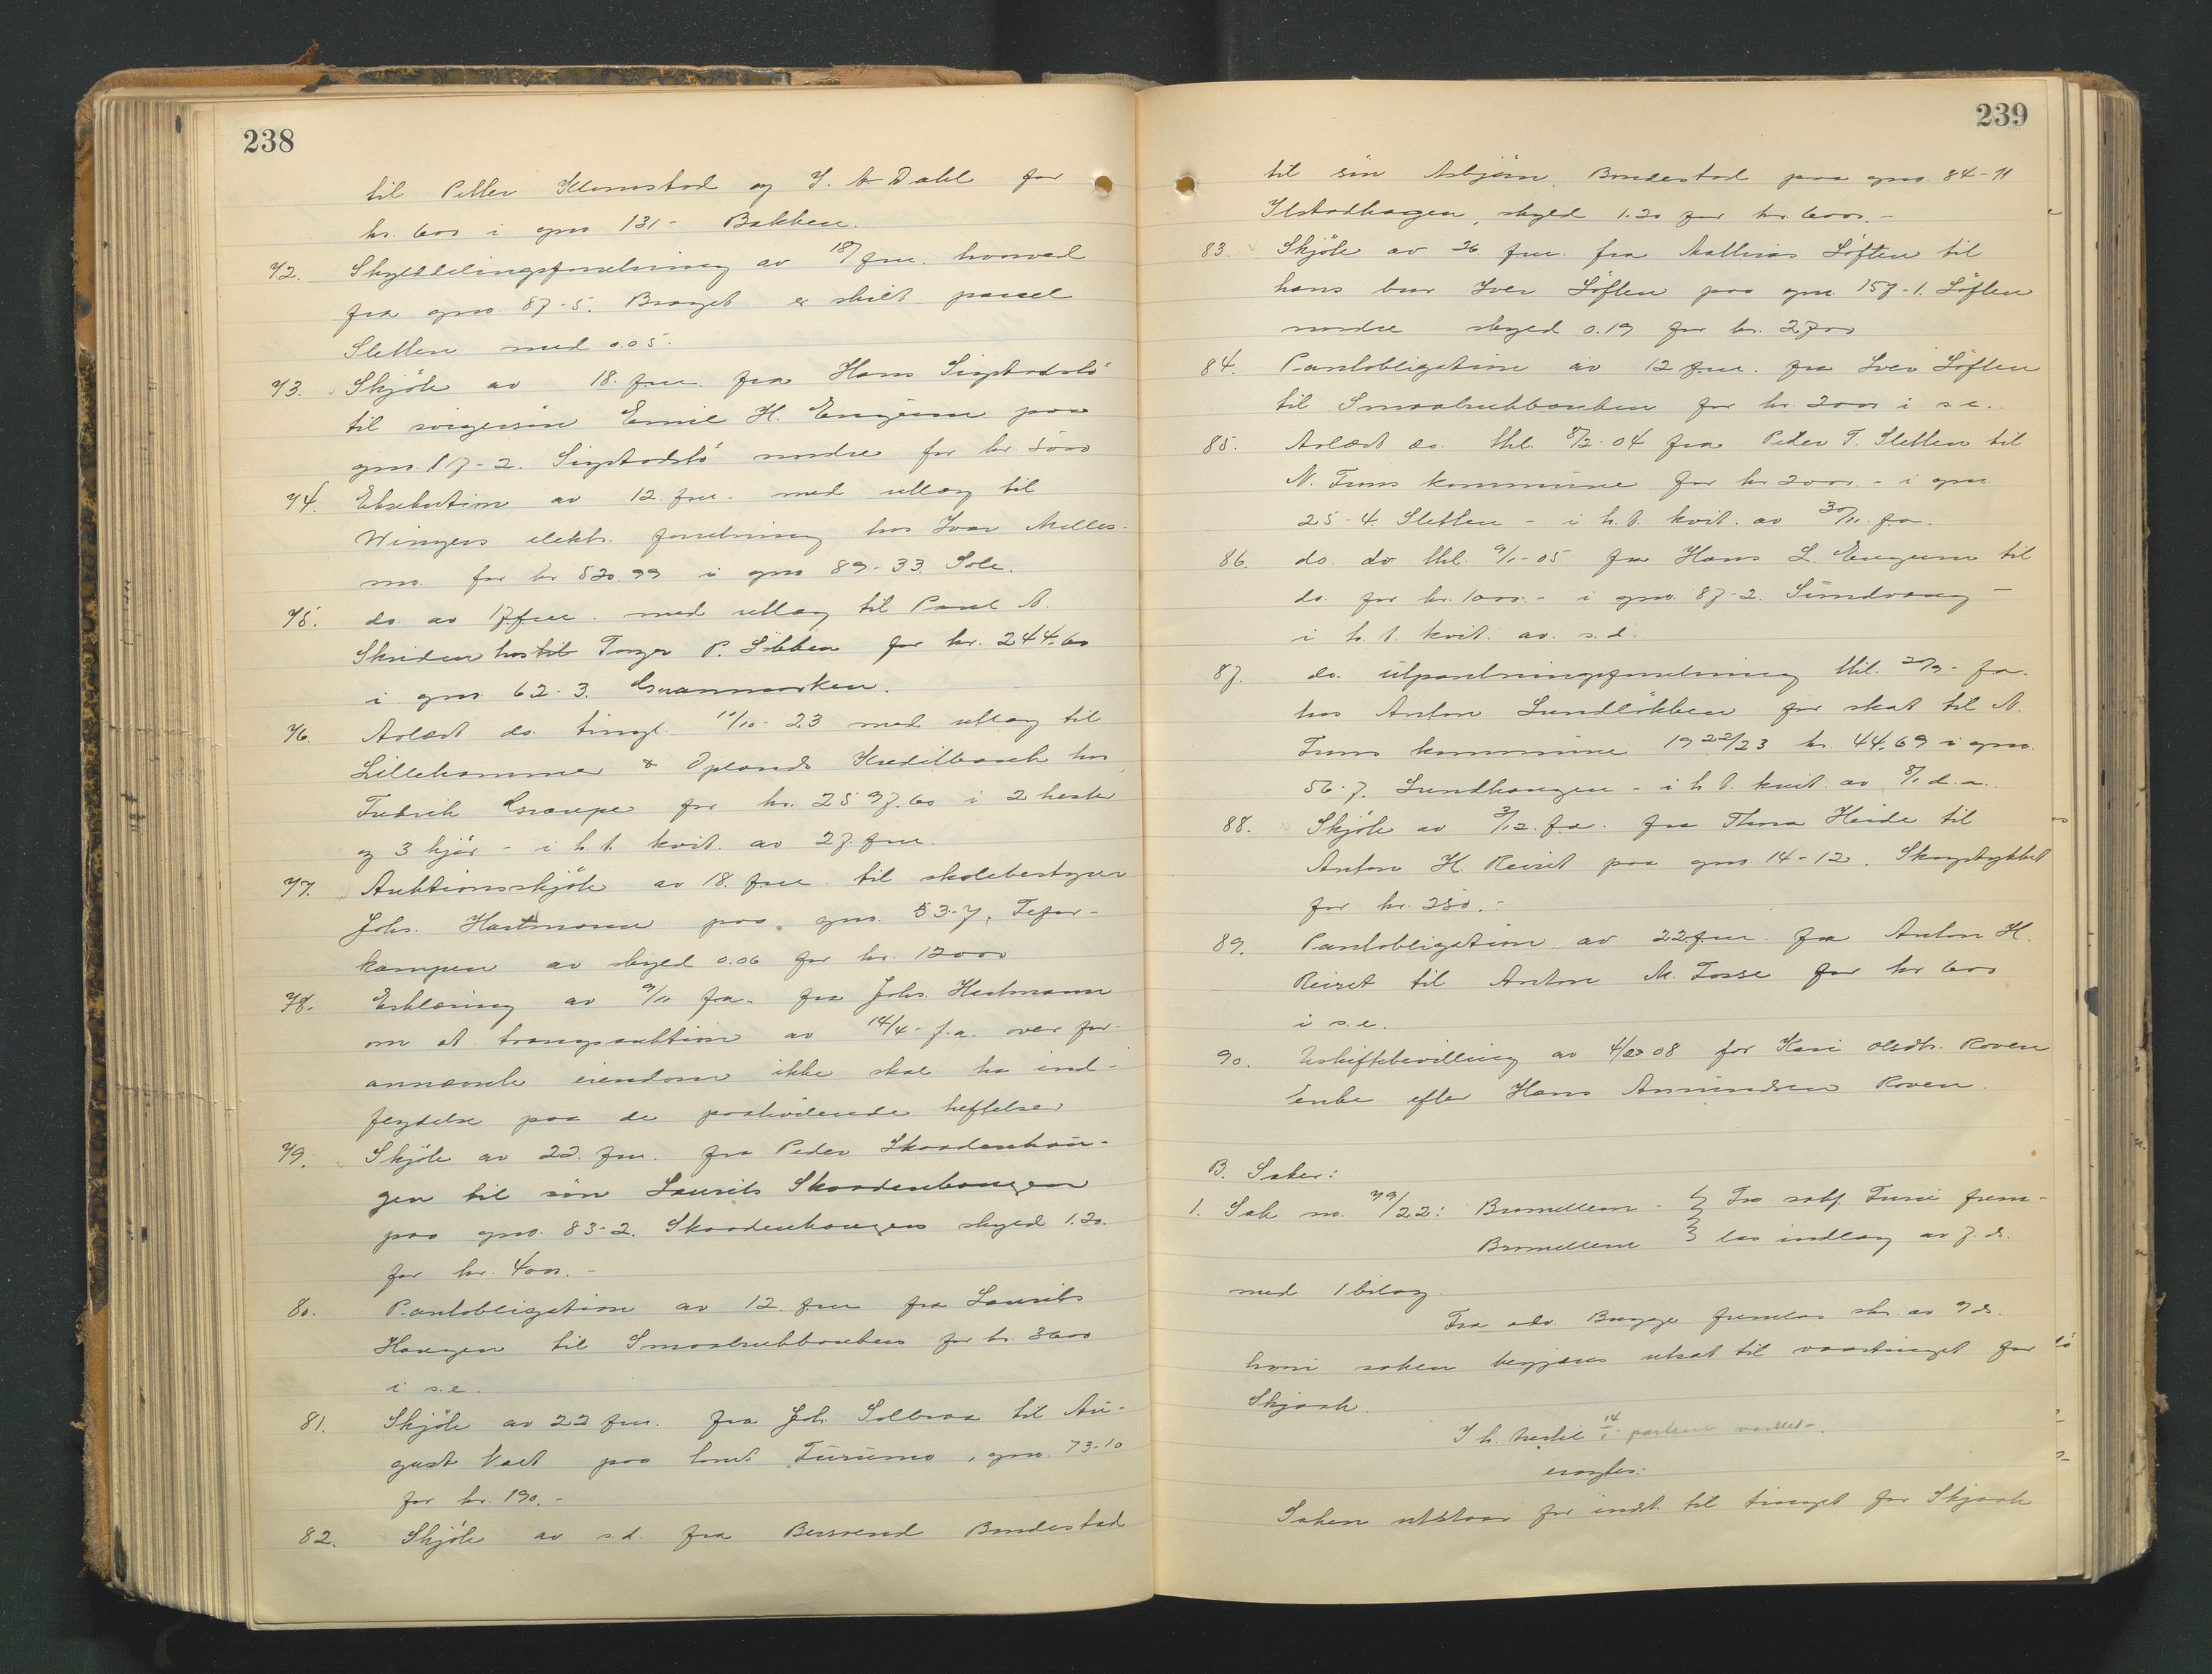 238
til Petter Klomstad og J. A. Dahl for
kr. 600 i gno 131 - Bakken.
72. Skylddelingsforretning av 18/ fne. hvorved
fra gno. 87-5. Braget er skilt parcel
Sletten med 0.05.
73. Skjöte av 18. fne. fra Hans Sigstadslö
til svigersön Emil H. Engum paa
gno. 17-2. Sigstadslö nordre for kr. 5000
74. Eksekution av 12. fne. med utlæg til
Wingers elektr. forretning hos Ivar Melles-
mo. for kr 520.99 i gno 89-33. Sole.
75. do. av 17. fne. med utlæg til Paul A.
Skriden hos Torger P. Lökken for kr. 244.60
i gno. 62-3. Granmorken.
76. Avlæst do. tingl. 11/10-23 med utlæg til
Lillehammer & Oplands Kreditbank hos
Fredrik Graupe for kr. 2597.60 i 2 hester
og 3 kjör - i h. t. kvit. av 27. fne.
77. Auktionsskjöte av 18. fne. til skolebestyrer
Johs. Hartmann paa gno. 53-7, Tefor-
kampen av skyld 0.06 for kr. 12000
78. Erklæring av 9/11 f.a. fra Johs. Hartmann
om at tvangsauktion av 14/4- f.a. over for-
annævnte eiendom ikke skal ha ind-
flydelse paa de paahvilende heftelser
79. Skjöte av 22. fne. fra Peder Skaadenhau-
gen til sön Laurits Skaadenhaugen
paa gno. 83-2. Skaadenhaugen skyld 1.20.
for kr. 4000.-
80. Pantobligation av 12. fne fra Laurits
Haugen til Smaabrukbanken for kr. 3600
i s.e.
81. Skjöte av 22 fne. fra Joh. Solbraa til Au-
gust Valt paa tomt Furumo, gno. 73-10
for kr. 190.-
82. Skjöte av s.d. fra Bersvend Bondestad
239
til sön Asbjörn Bondestad paa gno. 84-11
Ilstadhagen, skyld 1.20 for kr. 6000.-
83. Skjöte av 26 fne. fra Mathias Löften til
hans bror Iver Löften paa gno. 157-1. Löften
nordre skyld 0.19 for kr. 2700
84. Pantobligation av 12 fne. fra Iver Löften
til Smaabrukbanken for kr. 2000 i s.e..
85. Avlæst do. thl. 8/2-04 fra Peder T. Sletten til
N. Frons kommune for kr 2000.- i gno.
25-4. Sletten - i h. t. kvit. av 30/11. f.a.
86. do. do thl. 9/1-05 fra Hans L. Engum til
do. for kr. 1000.- i gno. 87-2. Sundvang -
i h. t. kvit. av. s.d.
87. do. utpantningsforretning thl. 20/9- f.a.
hos Anton Lundlökken for skat til N.
Frons kommune 1922/23 kr. 44.69 i gno.
56-7. Lundhaugen - i h t. kvit. av 8/1 d.a..
88. Skjöte av 3/12. f.a. fra Thora Heide til
Anton H. Reiret paa gno. 14-12. Skogstykket
for kr. 250.-
89. Pantobligation av 22 fne. fra Anton H.
Reiret til Anton M. Fosse for kr 600
i s.e.
90. Uskiftebevilling av 4/2 08 for Kari Olsdtr. Roven
Enke efter Hans Amundsen Roven.
B. Saker:
1. Sak no. 79/22: Bromellem - Fra sakf. Furu frem-
Bromellem las indlæg av 7. ds.
med 1 bilag.
Fra adv. Bugge fremlas skr. av 9 ds.
hvori saken begjæres utsat til vaartinget for
Skjaak.
I h. hertil 14/1 partene varslet.
eragtes:
Saken utstaar for indst. til tinget for Skjaak